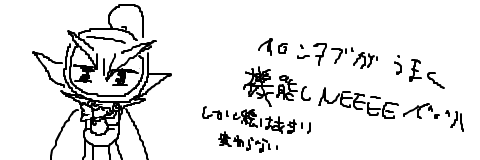 イロンタブがうまく
機能しNEEEEベッツ
しかし絵はあまり
変わらない